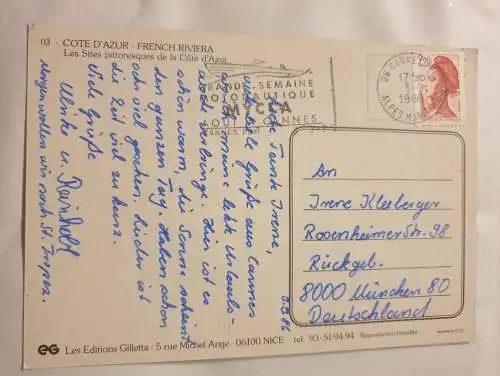 03 - COTE D'AZUR - FRENCH RIVIERA
Les Sites pittoresques de la Côte d'Azur
GRANDE SEMAINE
MYCCA
AOUT CANNES
CANNES
06 CANNES
ALPES MAR
2,20
3.8.86
Liebe Tante Irene,
viele liebe Grüße aus Cannes
wo ich meine letzte Urlaubs-
woche verbringe. Hier ist es
schön warm, die Sonne scheint
den ganzen Tag. Haben schon
sehr viel gesehen. Leider ist
die Zeit viel zu kurz.
Viele Grüße
Ulrike u. Reinhold
Morgen wollen wir nach St. Tropez.
An
Irene Kleeberger
Rosenheimer Str. 98
Rückgeb.
8000 München 80
Deutschland
EG Les Editions Gilletta - 5 rue Michel Ange - 06100 NICE - tel: 93-51-94-94 Reproduction interdite